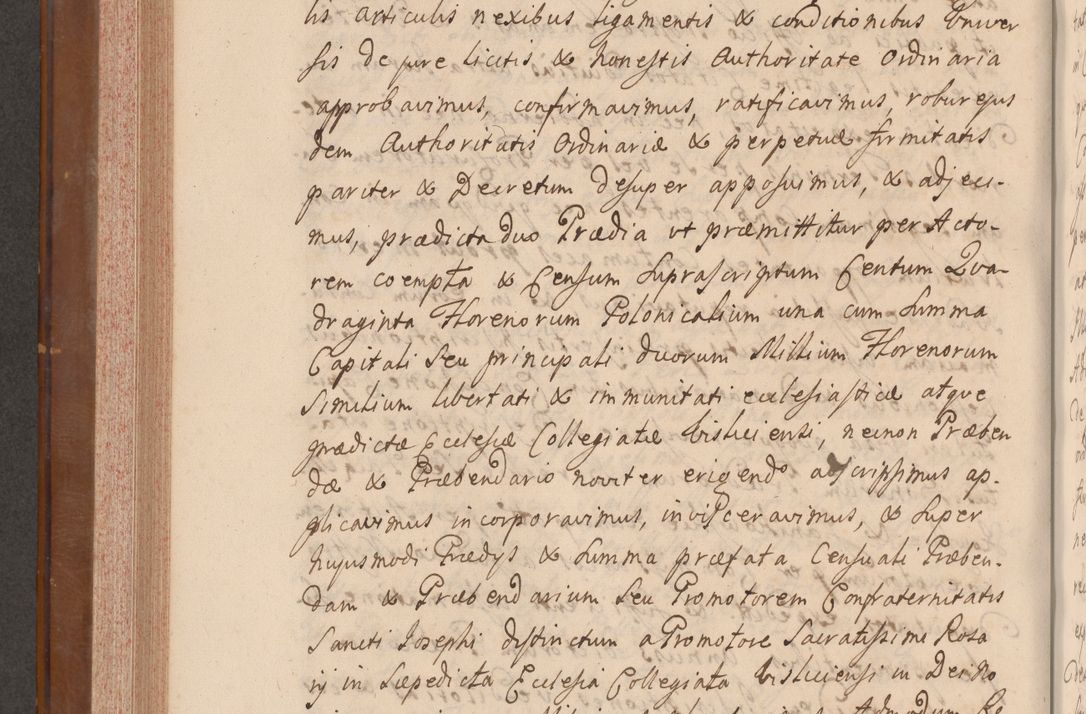 lis articulis nexibus ligamentis & conditionibus Univer
sis de jure licitis & honestis Authoritate Ordinaria
approbavimus, confirmavimus, ratificavimus, robur ejus
dem Authoritatis Ordinariæ & perpetuæ firmitatis
pariter & Decretum desuper apposuimus, & adjeci-
mus, prædicta duo Prædia ut præmittitur per Acto-
rem coempta & Censum suprascriptum Centum Qua-
draginta Florenorum Polonicalium una cum Summa
Capitali seu principali duorum Millium Florenorum
Similium libertati & immunitati ecclesiasticæ atque
prædictæ Ecclesiæ Collegiatæ Visliciensi, necnon Præben
dæ & Præbendario noviter erigendo adscripsimus ap-
plicavimus incorporavimus, invisceravimus, & super
hujusmodi Prædijs & Summa præfata Censuali Præben-
dam & Præbendarium seu Promotorem Confraternitatis
Sancti Josephi distinctum a Promotore Sacratissimi Rosa
rij in sæpedicta Ecclesia Collegiata Visliciensi in Dei No